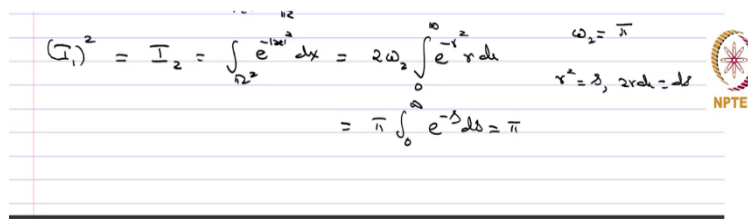 (I₁)² = I₂ = ∫_{ℝ²} e^{-|x|²} dx = 2ω₂ ∫₀^∞ e^{-r²} r dr    ω₂ = π
r² = s, 2rdr = ds
= π ∫₀^∞ e^{-s} ds = π
NPTE